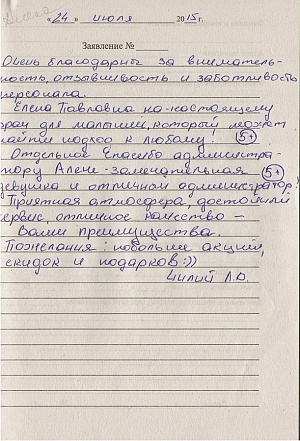 «24» июля 2015г.
Заявление №
Очень благодарны за вниматель-
ность, отзывчивость и заботливость
персонала.
Елена Павловна на-настоящему
врач для малышей, который может
найти подход к любому! 5+
Отдельное спасибо администра-
тору Алене - замечательная 5+
девушка и отличный администратор!
Приятная атмосфера, достойный
сервис, отличное качество –
Ваши преимущества.
Пожелания: побольше акций,
скидок и подарков:))
Л.О.